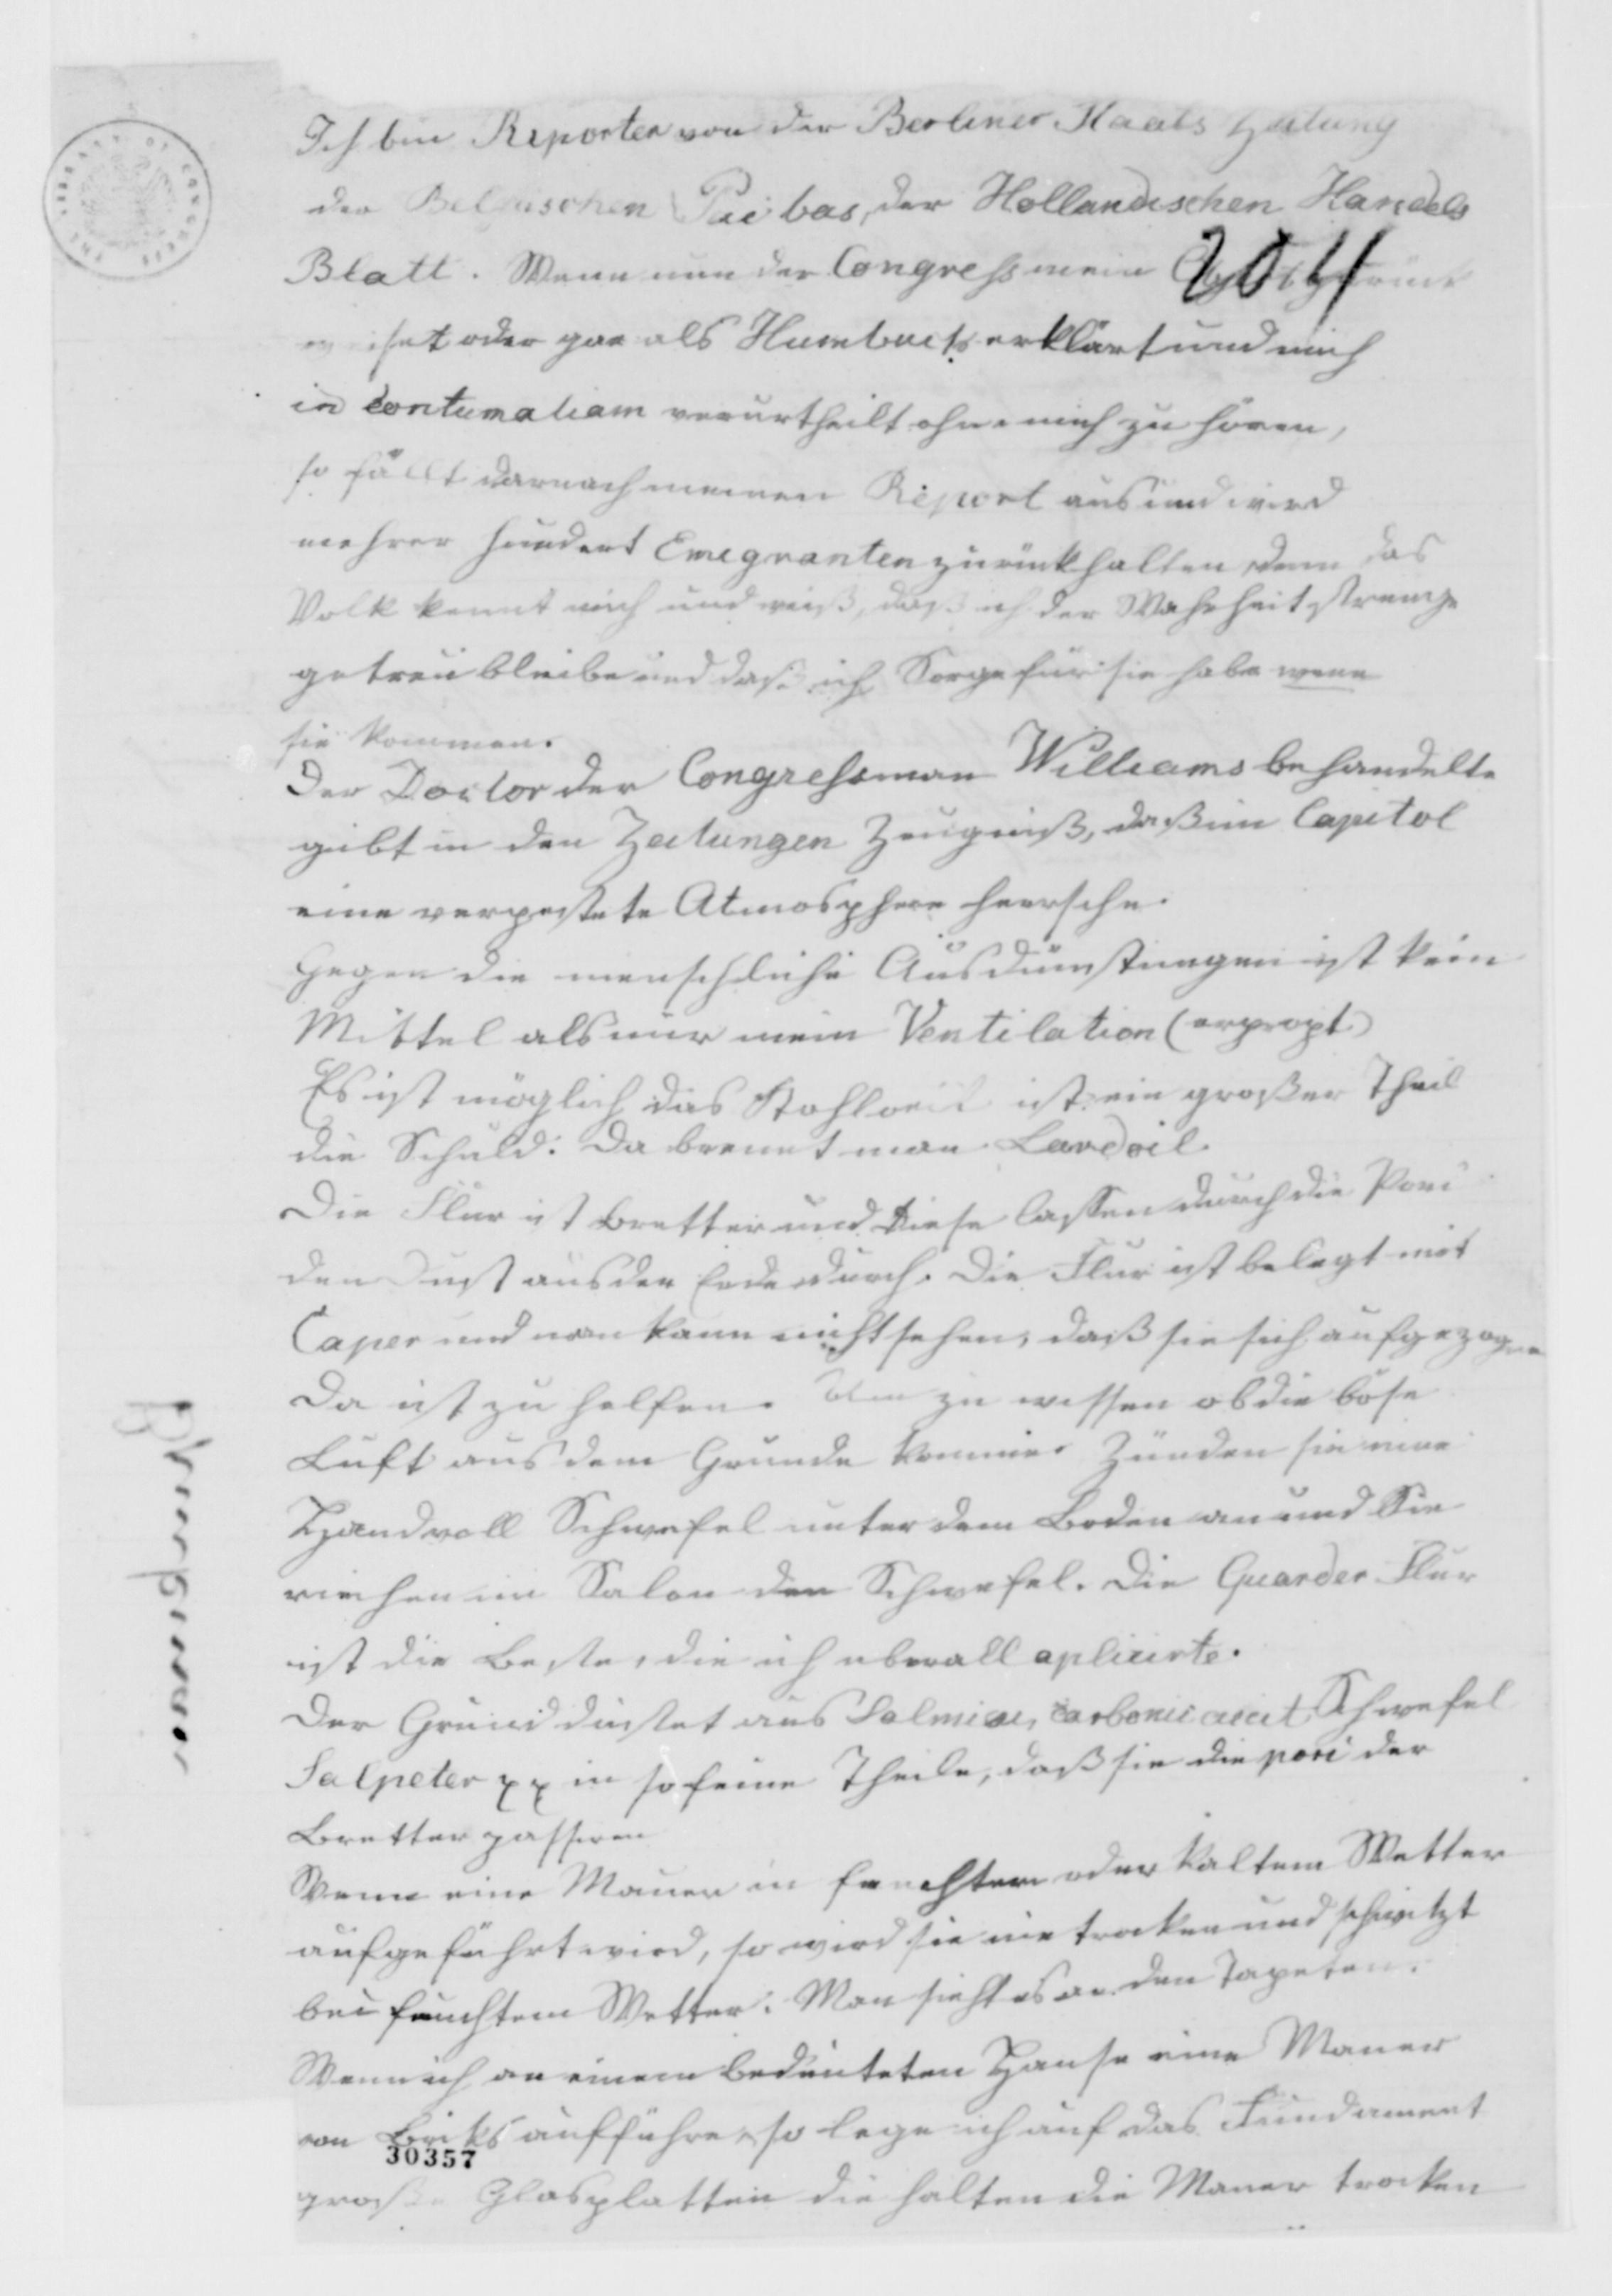 Ich bin Reporter von der Berliner Staats Zeitung
der Belgischen Pai bas, der Hollandischen Handels
Blatt. Wenn nun der Congress mein
204
weiset oder gar als Humbuck erklärt und mich
in Contumatiam verurtheilt ohne mich zu hören,
so fällt darnach meinen Report aus und wird
mehrer hundert Emegranten zurückhalten, denn das
Volk kennt mich und weiß, daß ich der Wahrheit strenge
getreu bleibe und daß ich Sorge für sie habe wenn
sie kommen.
Der Doctor der Congressman Williams behandelte
gibt in den Zeitungen Zeugniß, daß im Capitol
eine verpestete Atmosphere herrsche.
Gegen die menschliche Ausdünstungen ist kein
Mittel als nur mein Ventilation (erpropt)
Es ist möglich das ist ein großer Theil
die Schuld. Da brennt man Lardoil.
Die Flur ist Bretter und diese lassen durch die Pori
den Dust aus der Erde durch. Die Flur ist belegt mit
Caper und man kann nicht sehen, daß sie sich aufgezogen
Da ist zu helfen. Um zu wissen ob die böse
Luft aus dem Grunde komme. Zünden sie eine
Handvoll Schwefel unter dem Boden an und Sie
riechen im Salon den Schwefel. Die Guarder Flur
ist die Beste, die ich uberall aplicirte.
Der Grund dustet aus Salmiac, carbonic acit, Schwefel
Salpeter xx in so feine Theile, daß sie die pori der
Bretter passiren
Wenn eine Mauer in feuchtem oder kaltem Wetter
aufgeführt wird, so wird sie nie trocken und schwitzt
bei feuchtem Wetter. Man sieht es an den Tapeten.
Wenn ich an einem bedeuteten Hause eine Mauer
von Briks aufführe, so lege ich auf das Fundament
30357
große Glasplatten die halten die Mauer trocken
THE LIBRARY OF CONGRESS